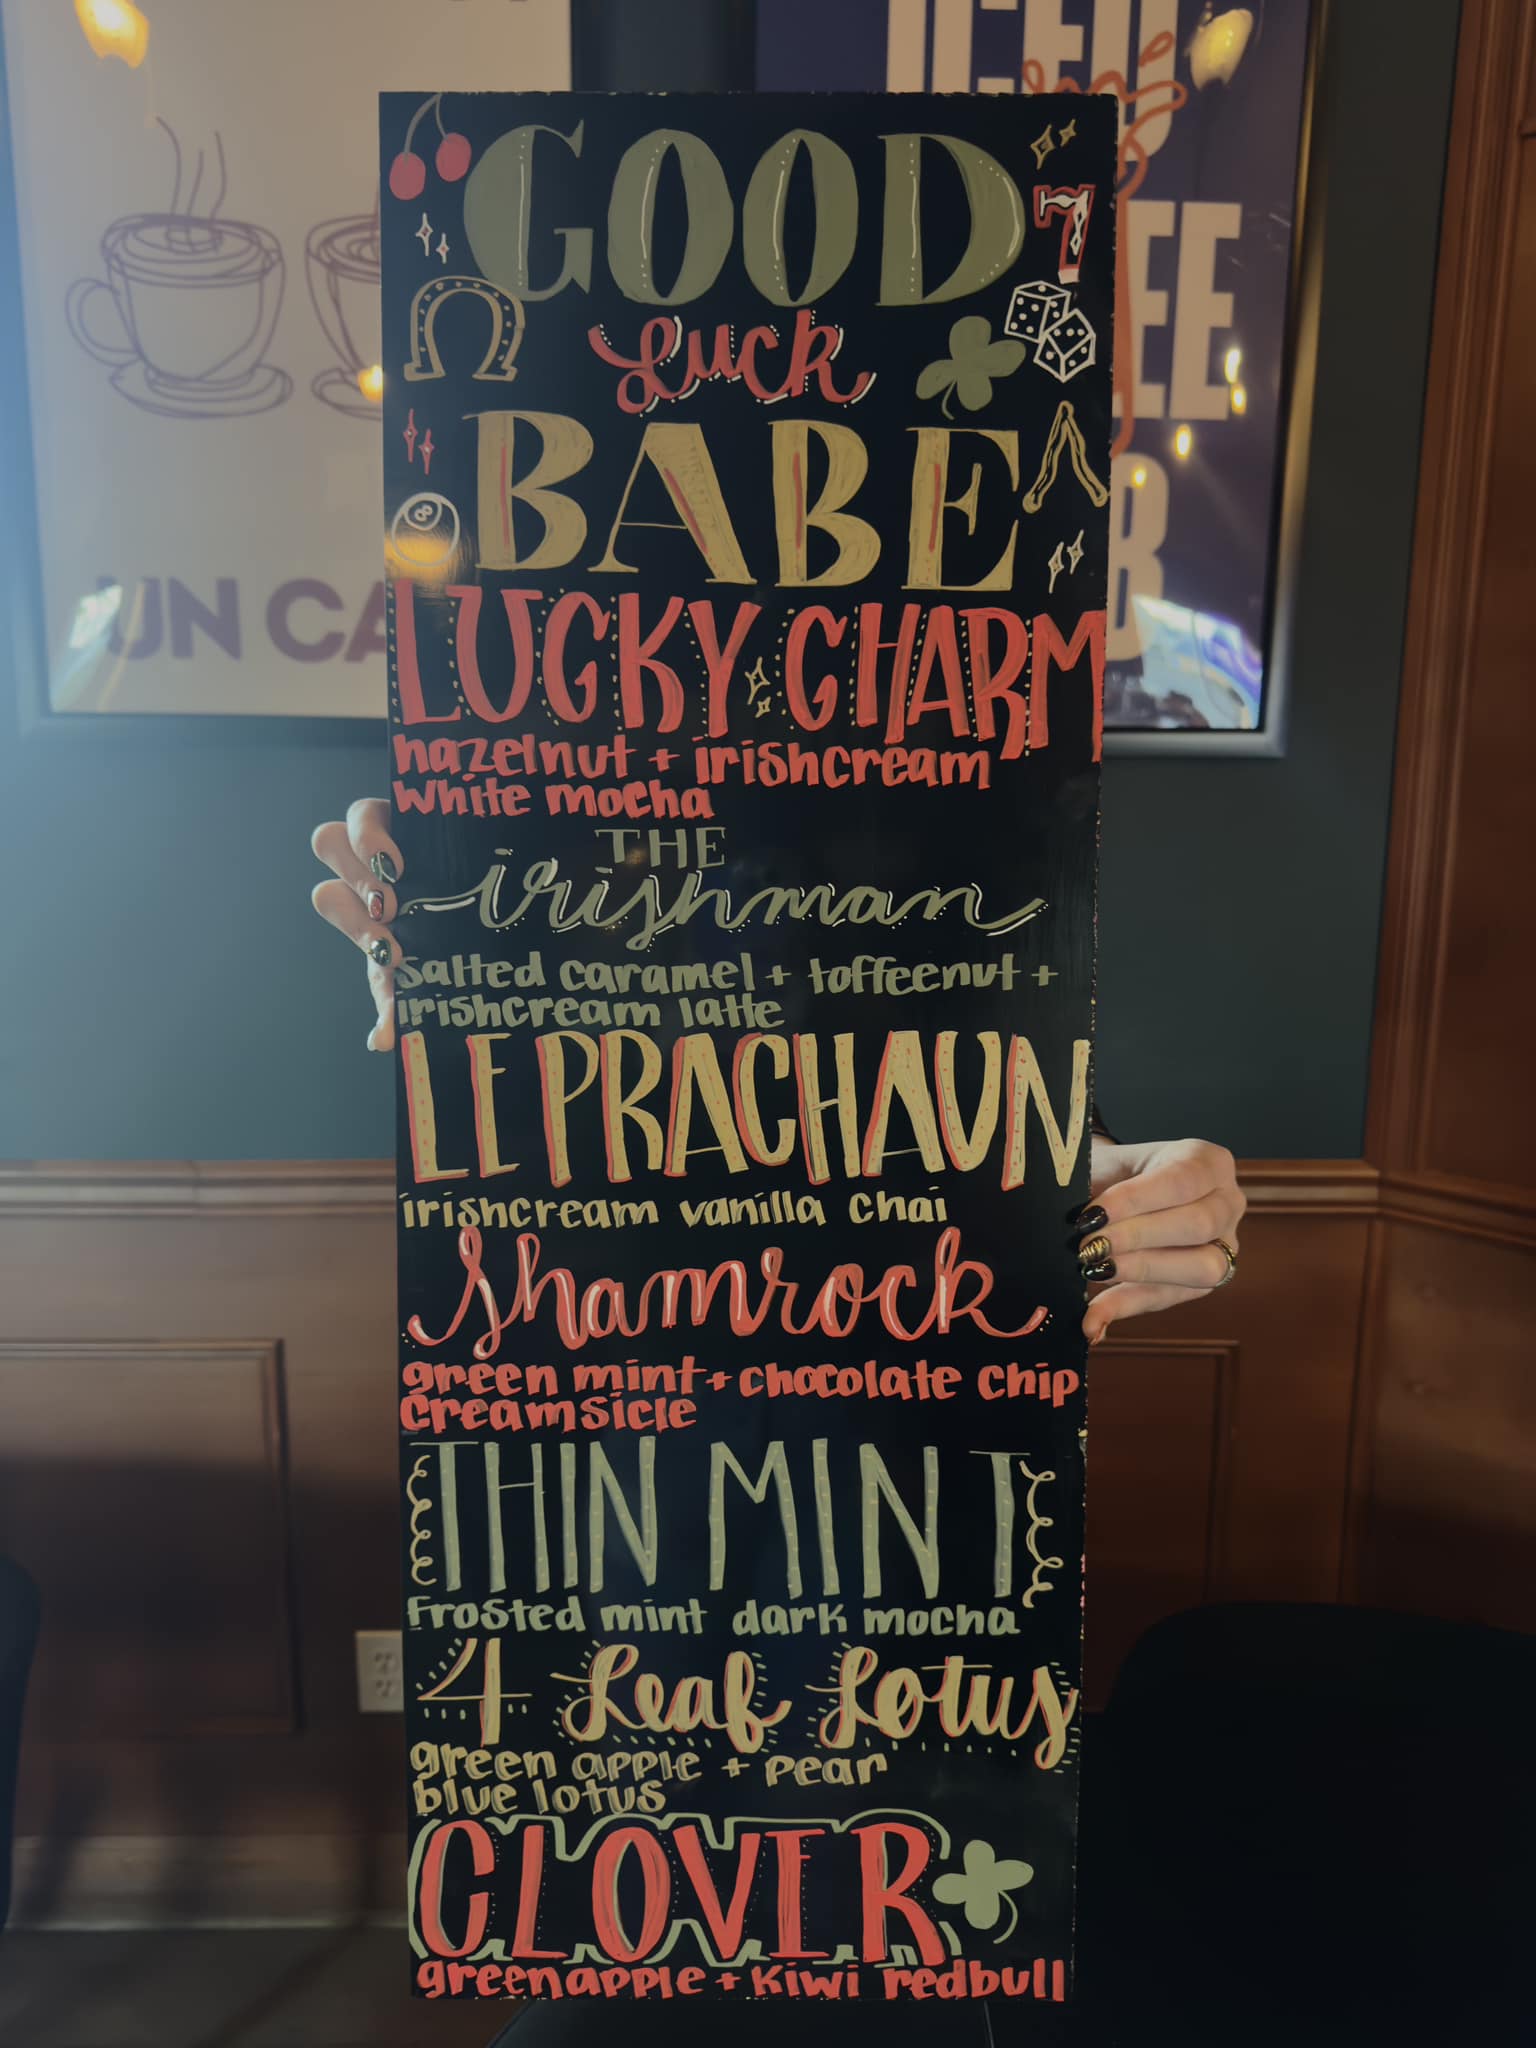 ICED
GOOD
7
Luck
BABE
8
UN CA
EE
B
LUCKY CHARM
hazelnut + irishcream
white mocha
THE
irishman
salted caramel + toffeenut +
irishcream latte
LEPRACHAUN
irishcream vanilla chai
Shamrock
green mint + chocolate chip
creamsicle
THIN MINT
frosted mint dark mocha
4 Leaf Lotus
green apple + pear
blue lotus
CLOVER
green apple + kiwi redbull